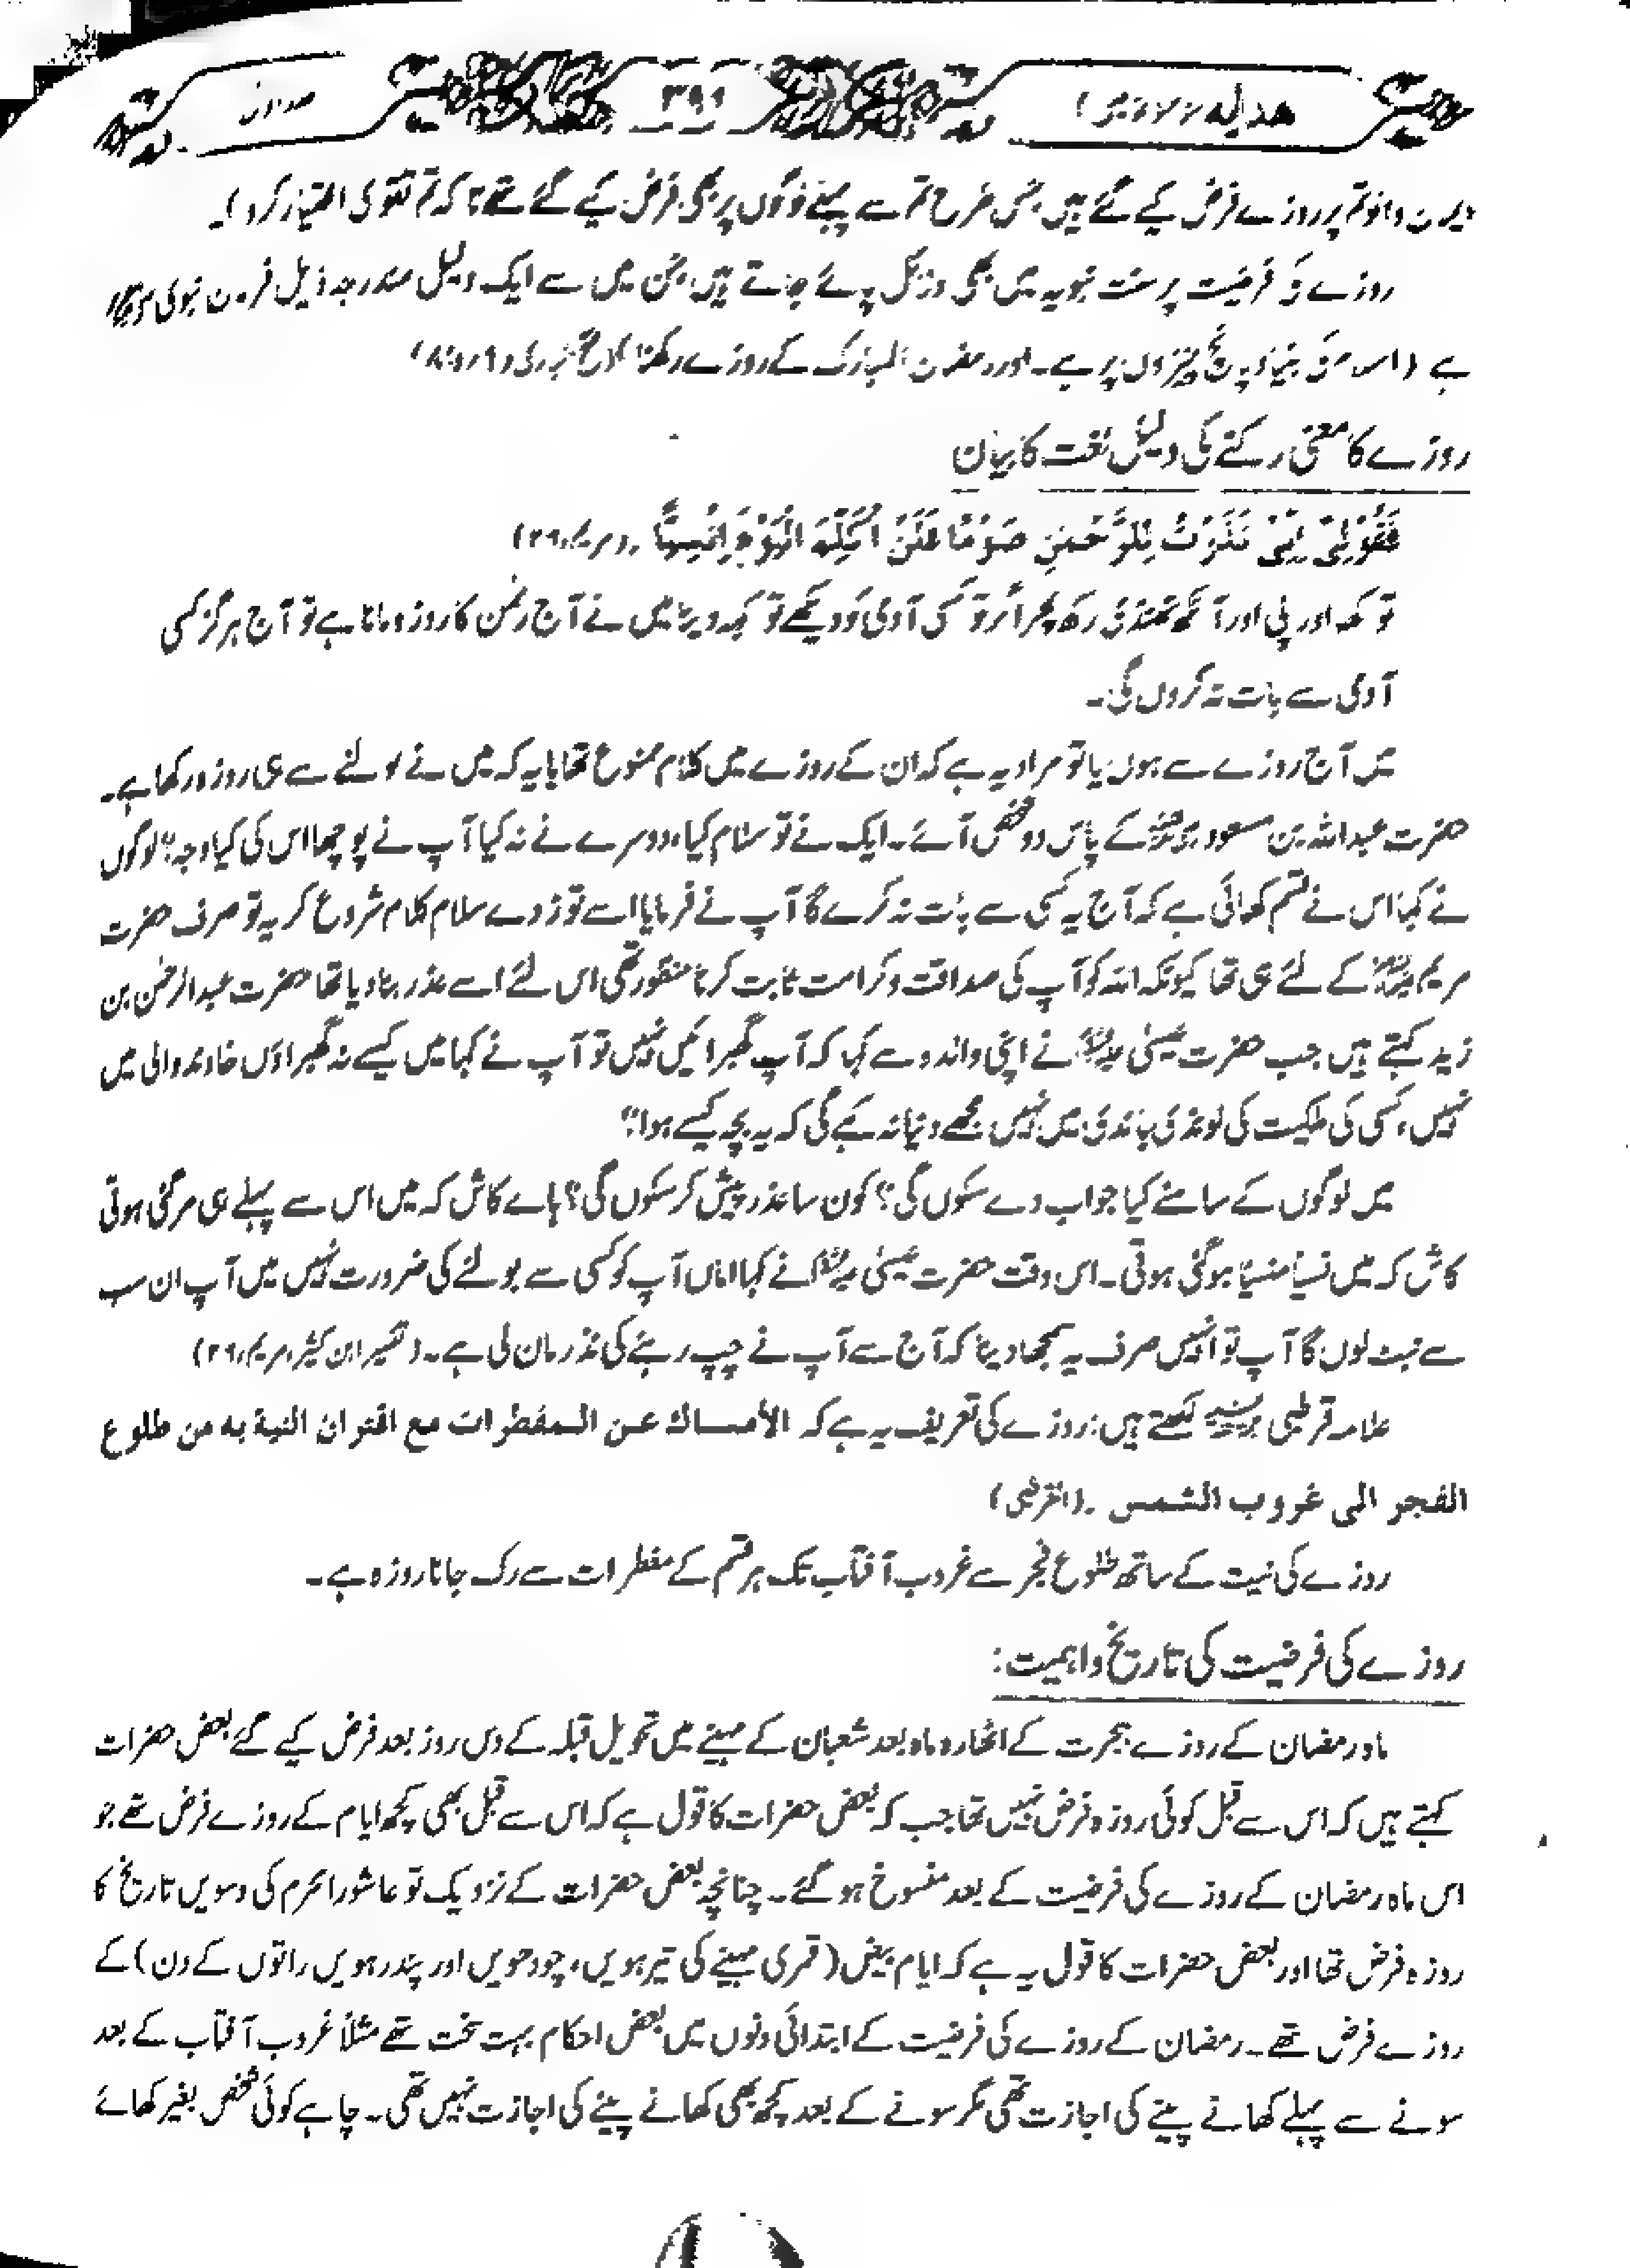 ۳۹۹
ایمان والو تم پر روزے فرض کیے گئے ہیں، جس طرح تم سے پہلے لوگوں پر بھی فرض کیے گئے تھے تاکہ تم تقویٰ اختیار کرو)۔
روزے کی فرضیت پر سنت نبویہ میں بھی دلائل پائے جاتے ہیں، جن میں سے ایک دلیل مندرجہ ذیل فرمان نبوی
ہے (اسلام کی بنیاد پانچ چیزوں پر ہے۔ اور رمضان المبارک کے روزے رکھنا)
روزے کا معنی رکنے کی دلیل لغت کا بیان
فَقُوْلِیْٓ اِنِّیْ نَذَرْتُ لِلرَّحْمٰنِ صَوْمًا فَلَنْ اُکَلِّمَ الْیَوْمَ اِنْسِیًّا ۔(مریم، ۲۶)
تو کھا اور پی اور آنکھ ٹھنڈی رکھ پھر اگر تو کسی آدمی کو دیکھے تو کہہ دینا میں نے آج رحمٰن کا روزہ مانا ہے تو آج ہرگز کسی
آدمی سے بات نہ کروں گی۔
میں آج روزے سے ہوں یا تو مراد یہ ہے کہ ان کے روزے میں کلام ممنوع تھا یا یہ کہ میں نے بولنے سے ہی روزہ رکھا ہے۔
حضرت عبداللہ بن مسعود کے پاس دو شخص آئے۔ ایک نے تو سلام کیا، دوسرے نے نہ کیا آپ نے پوچھا اس کی کیا وجہ؟ لوگوں
نے کہا اس نے قسم کھائی ہے کہ آج یہ کسی سے بات نہ کرے گا آپ نے فرمایا اسے توڑ دے سلام کلام شروع کر یہ تو صرف حضرت
مریم کے لئے ہی تھا کیونکہ اللہ کو آپ کی صداقت و کرامت ثابت کرنا منظور تھی اس لئے اسے عذر بنا دیا تھا حضرت عبدالرحمٰن بن
زید کہتے ہیں جب حضرت عیسیٰ نے اپنی والدہ سے کہا کہ آپ گھبرائیں نہیں تو آپ نے کہا میں کیسے نہ گھبراؤں خاوند والی میں
نہیں، کسی کی ملکیت کی لونڈی باندی میں نہیں مجھے دنیا نہ کہے گی کہ یہ بچہ کیسے ہوا؟
میں لوگوں کے سامنے کیا جواب دے سکوں گی؟ کون سا عذر پیش کر سکوں گی؟ ہائے کاش کہ میں اس سے پہلے ہی مر گئی ہوتی
کاش کہ میں نسیا منسیا ہو گئی ہوتی۔ اس وقت حضرت عیسیٰ نے کہا اماں آپ کو کسی سے بولنے کی ضرورت نہیں میں آپ ان سب
سے نبٹ لوں گا آپ تو انہیں صرف یہ سمجھا دینا کہ آج سے آپ نے چپ رہنے کی نذر مان لی ہے۔ (تفسیر ابن کثیر، مریم، ۲۶)
علامہ قرطبی لکھتے ہیں: روزے کی تعریف یہ ہے کہ الأمساك عن المفطرات مع اقتران النية به من طلوع
الفجر الی غروب الشمس ۔(القرطبی)
روزے کی نیت کے ساتھ طلوع فجر سے غروب آفتاب تک ہر قسم کے مفطرات سے رک جانا روزہ ہے۔
روزے کی فرضیت کی تاریخ و اہمیت:
ماہ رمضان کے روزے ہجرت کے اٹھارہ ماہ بعد شعبان کے مہینے میں تحویل قبلہ کے دس روز بعد فرض کیے گئے بعض حضرات
کہتے ہیں کہ اس سے قبل کوئی روزہ فرض نہیں تھا جب کہ بعض حضرات کا قول ہے کہ اس سے قبل بھی کچھ ایام کے روزے فرض تھے جو
اس ماہ رمضان کے روزے کی فرضیت کے بعد منسوخ ہو گئے۔ چنانچہ بعض حضرات کے نزدیک تو عاشورا محرم کی دسویں تاریخ کا
روزہ فرض تھا اور بعض حضرات کا قول یہ ہے کہ ایام بیض (قمری مہینے کی تیرہویں، چودھویں اور پندرہویں راتوں کے دن) کے
روزے فرض تھے۔ رمضان کے روزے کی فرضیت کے ابتدائی دنوں میں بعض احکام بہت سخت تھے مثلاً غروب آفتاب کے بعد
سونے سے پہلے کھانے پینے کی اجازت تھی مگر سونے کے بعد کچھ بھی کھانے پینے کی اجازت نہیں تھی۔ چاہے کوئی شخص بغیر کھائے